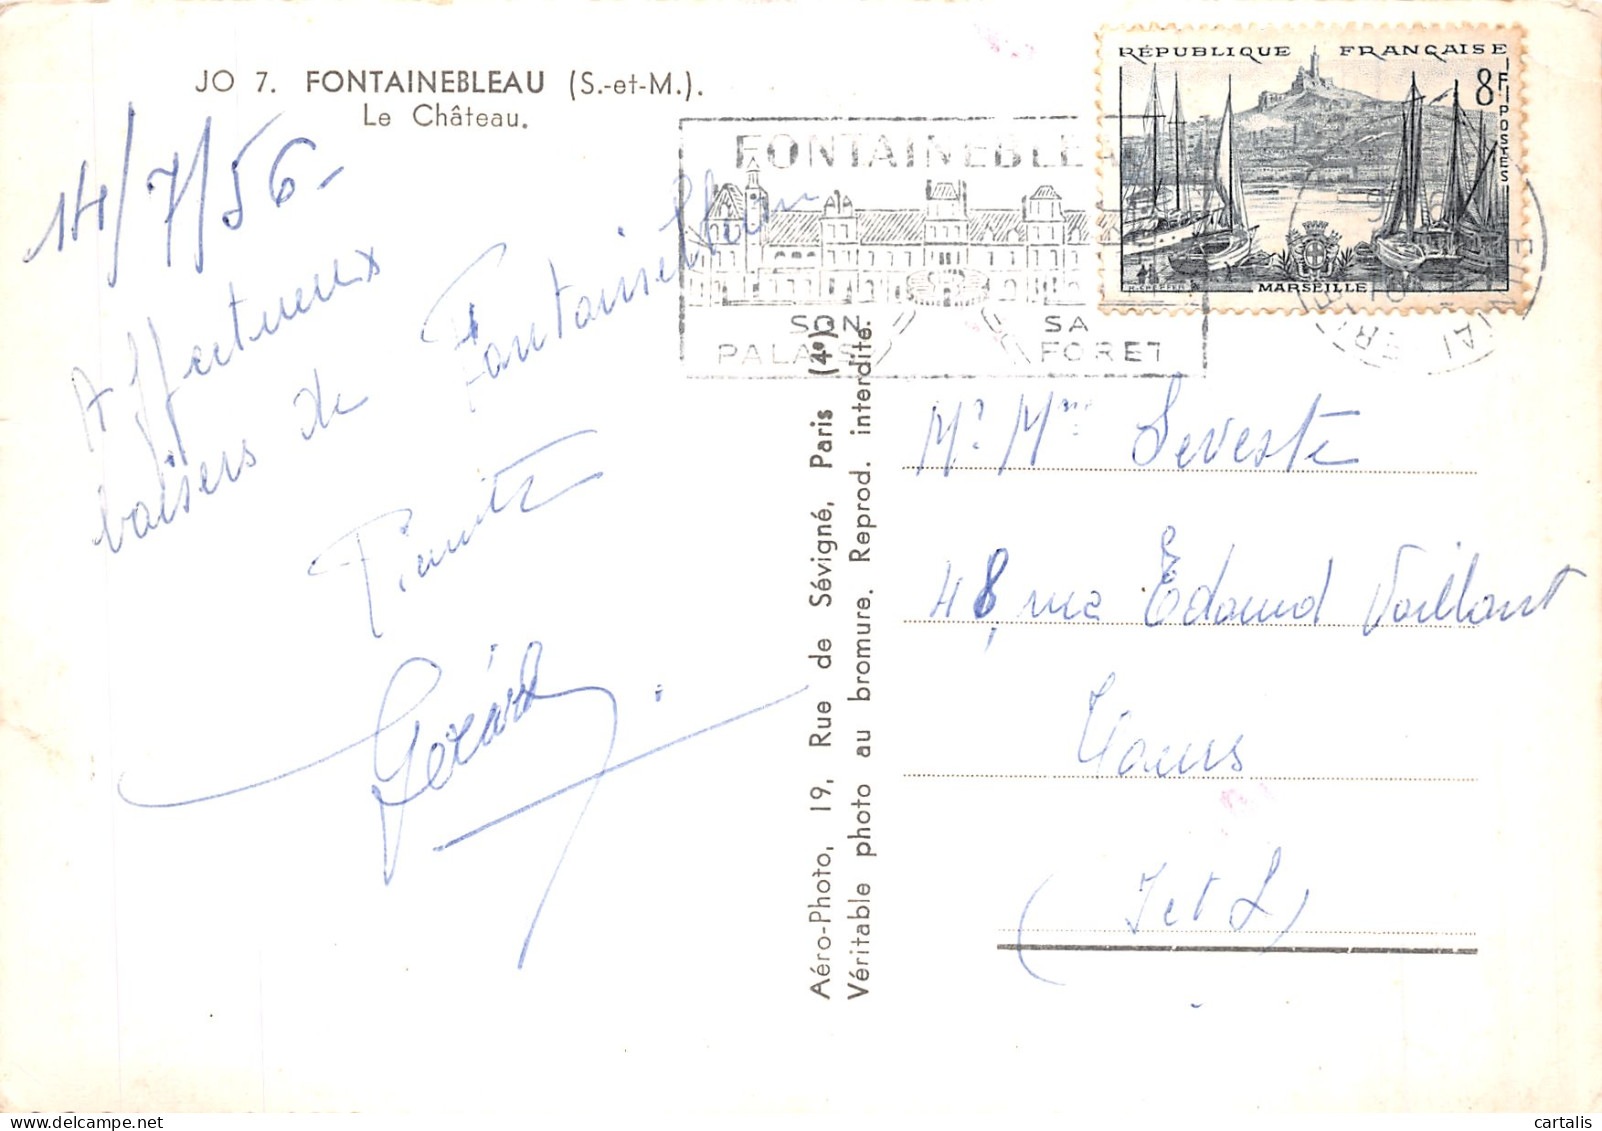 JO 7. FONTAINEBLEAU (S.-et-M.).
Le Château.
14/7/56-
Affectueux
baisers de Fontainebleau
Gérard.
Aéro-Photo, 19, Rue de Sévigné, Paris (4e).
Véritable photo au bromure. Reprod. interdite.
FONTAINEBLEA
SON PALAIS
SA FORET
RÉPUBLIQUE FRANÇAISE
8F POSTES
MARSEILLE
Mr Mme Seveste
48, rue Edouard Vaillant
Tours
(I et L)
cartalis